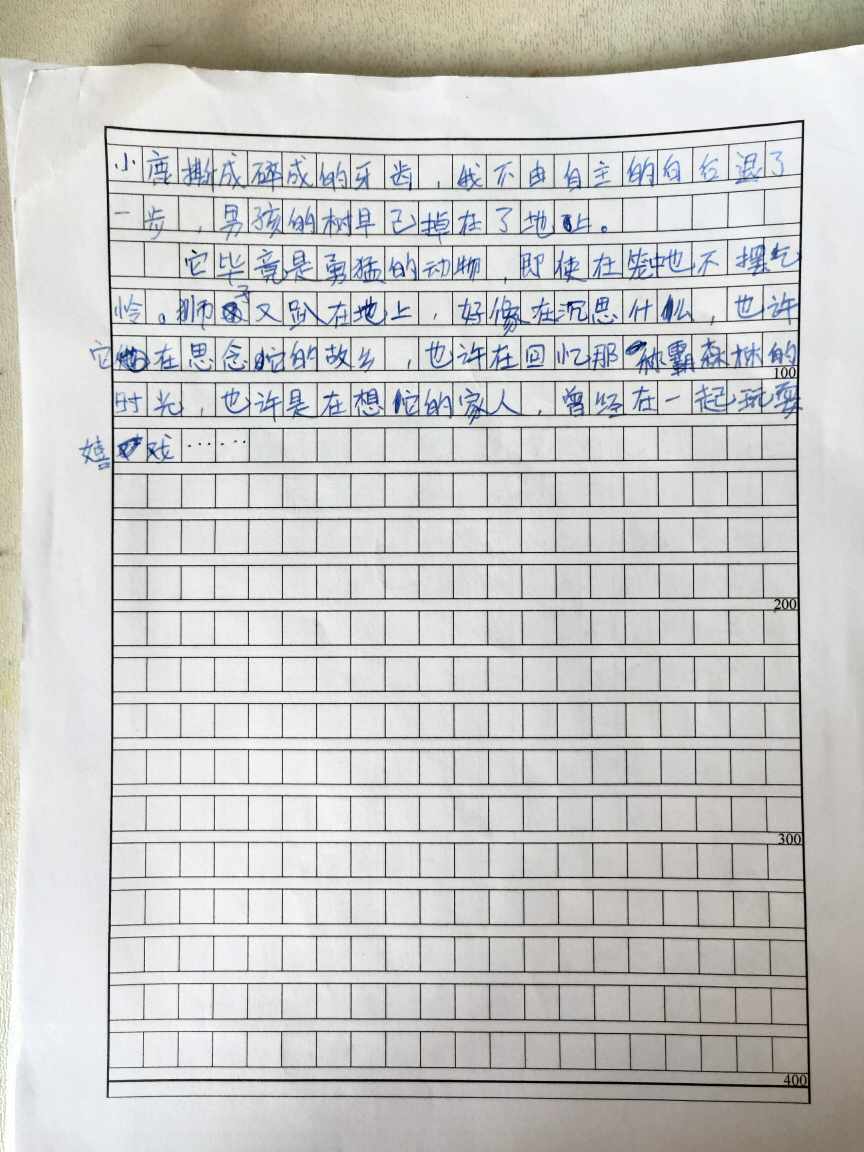 小鹿撕成碎成的牙齿，我不由自主的向后退了
一步，男孩的树早已掉在了地上。
它毕竟是勇猛的动物，即使在笼中也不摆乞
怜。狮子又趴在地上，好像在沉思什么，也许
它在思念它的故乡，也许在回忆那称霸森林的
100
时光，也许是在想它的家人，曾经在一起玩耍
嬉戏……
200
300
400